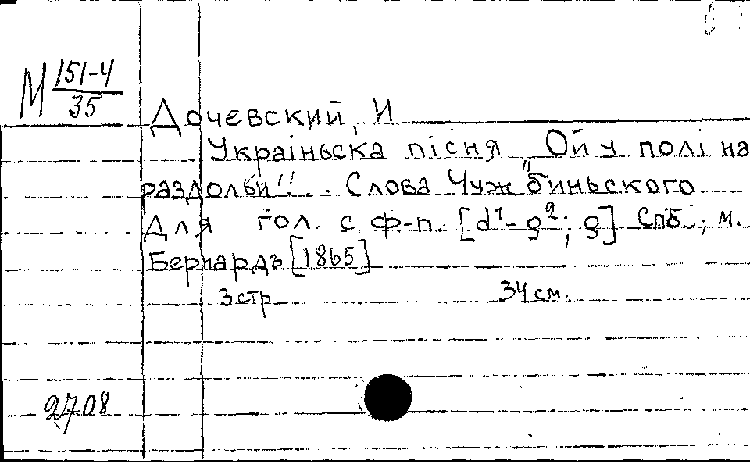 М 151-4
35
Дочевский, И
Украіньска пісня „Ой у полі на
раздольи!".. Слова Чужбиньского
Для гол. с ф-п. [d¹-g²; g] Спб.; м.
Бернардъ [1865]
3 стр 34 см.
2708